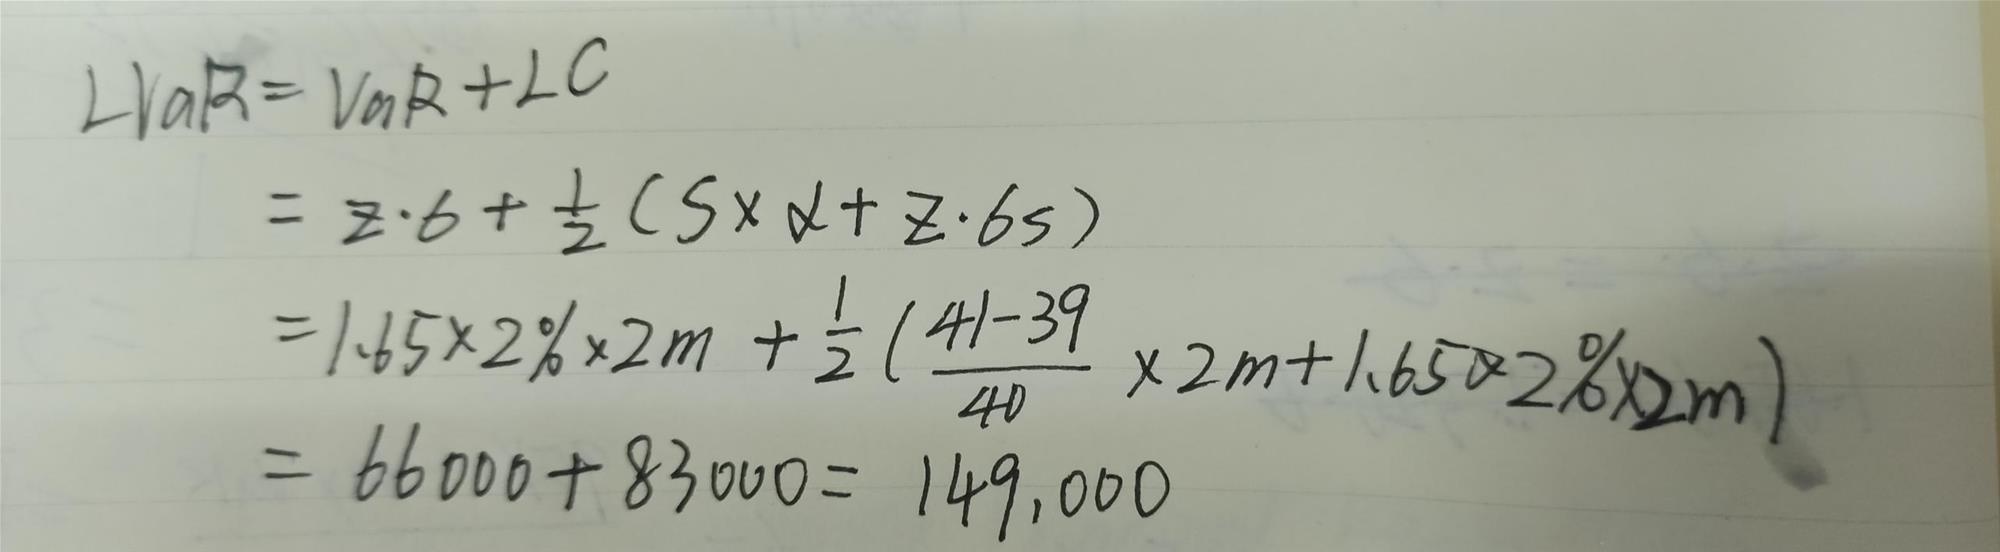 LVaR = VaR + LC
= z·σ + 1/2 (S × α + z·σs)
= 1.65 × 2% × 2m + 1/2 ( (41-39)/40 × 2m + 1.65 × 2% × 2m )
= 66000 + 83000 = 149,000